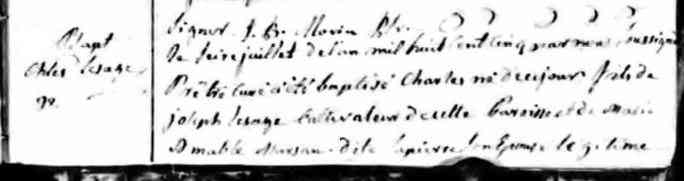 Bapt
Chles Lesage
Signer J. Bte. Morin Ptre.
Le seize juillet de l'an mil huit cent cinq par nous soussigné
Prêtre curé a été baptisé Charles né de ce jour fils de
joseph Lesage Cultivateur de cette Paroisse et de Marie
Amable Marsan dite Lapierre son Epouse legitime